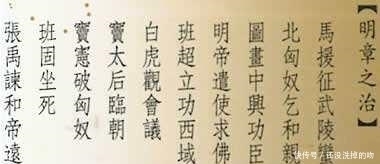 【明章之治】
馬援征武陵蠻
北匈奴乞和親
圖畫中興功臣
明帝遣使求佛
班超立功西域
白虎觀會議
竇太后臨朝
竇憲破匈奴
班固坐死
張禹諫和帝遠
快传号/